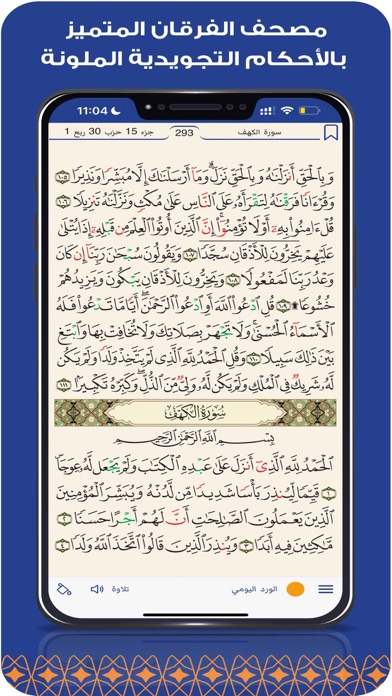 مصحف الفرقان المتميز
بالأحكام التجويدية الملونة
11:04
سورة الكهف 293 جزء 15 حزب 30 ربع 1
وَبِٱلْحَقِّ أَنزَلْنَٰهُ وَبِٱلْحَقِّ نَزَلَ ۗ وَمَآ أَرْسَلْنَٰكَ إِلَّا مُبَشِّرًا وَنَذِيرًا ١٠٥
وَقُرْءَانًا فَرَقْنَٰهُ لِتَقْرَأَهُۥ عَلَى ٱلنَّاسِ عَلَىٰ مُكْثٍ وَنَزَّلْنَٰهُ تَنزِيلًا ١٠٦
قُلْ ءَامِنُوا۟ بِهِۦٓ أَوْ لَا تُؤْمِنُوٓا۟ ۚ إِنَّ ٱلَّذِينَ أُوتُوا۟ ٱلْعِلْمَ مِن قَبْلِهِۦٓ إِذَا يُتْلَىٰ
عَلَيْهِمْ يَخِرُّونَ لِلْأَذْقَانِ سُجَّدًا ١٠٧ وَيَقُولُونَ سُبْحَٰنَ رَبِّنَآ إِن كَانَ
وَعْدُ رَبِّنَا لَمَفْعُولًا ١٠٨ وَيَخِرُّونَ لِلْأَذْقَانِ يَبْكُونَ وَيَزِيدُهُمْ
خُشُوعًا ۩ ١٠٩ قُلِ ٱدْعُوا۟ ٱللَّهَ أَوِ ٱدْعُوا۟ ٱلرَّحْمَٰنَ ۖ أَيًّا مَّا تَدْعُوا۟ فَلَهُ
ٱلْأَسْمَآءُ ٱلْحُسْنَىٰ ۚ وَلَا تَجْهَرْ بِصَلَاتِكَ وَلَا تُخَافِتْ بِهَا وَٱبْتَغِ
بَيْنَ ذَٰلِكَ سَبِيلًا ١١٠ وَقُلِ ٱلْحَمْدُ لِلَّهِ ٱلَّذِى لَمْ يَتَّخِذْ وَلَدًا وَلَمْ يَكُن
لَّهُۥ شَرِيكٌ فِى ٱلْمُلْكِ وَلَمْ يَكُن لَّهُۥ وَلِىٌّ مِّنَ ٱلذُّلِّ ۖ وَكَبِّرْهُ تَكْبِيرًۢا ١١١
سُورَةُ الكَهْفِ
بِسْمِ ٱللَّهِ ٱلرَّحْمَٰنِ ٱلرَّحِيمِ
ٱلْحَمْدُ لِلَّهِ ٱلَّذِىٓ أَنزَلَ عَلَىٰ عَبْدِهِ ٱلْكِتَٰبَ وَلَمْ يَجْعَل لَّهُۥ عِوَجَا ۜ
١ قَيِّمًا لِّيُنذِرَ بَأْسًا شَدِيدًا مِّن لَّدُنْهُ وَيُبَشِّرَ ٱلْمُؤْمِنِينَ
ٱلَّذِينَ يَعْمَلُونَ ٱلصَّٰلِحَٰتِ أَنَّ لَهُمْ أَجْرًا حَسَنًا ٢
مَّٰكِثِينَ فِيهِ أَبَدًا ٣ وَيُنذِرَ ٱلَّذِينَ قَالُوا۟ ٱتَّخَذَ ٱللَّهُ وَلَدًا ٤
الورد اليومي تلاوة